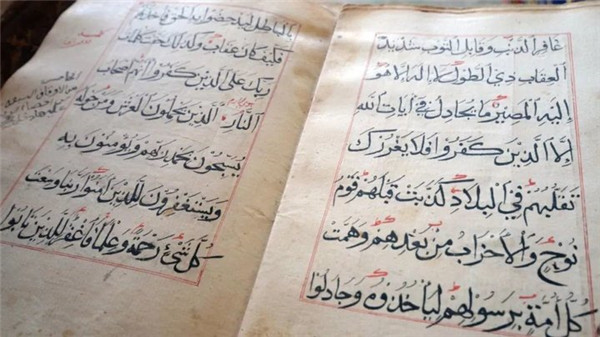 غافر الذنب وقابل التوب شديد
العقاب ذي الطول لا اله الا هو
اليه المصير ما يجادل في آيات الله
الا الذين كفروا فلا يغررك
تقلبهم في البلاد كذبت قبلهم قوم
نوح والاحزاب من بعدهم وهمت
كل امة برسولهم لياخذوه وجادلوا
بالباطل ليدحضوا به الحق فاخذتهم
فكيف كان عقاب وكذلك حقت كلمت
ربك على الذين كفروا انهم اصحاب
النار الذين يحملون العرش ومن حوله
يسبحون بحمد ربهم ويومنون به
ويستغفرون للذين آمنوا ربنا وسعت
كل شيء رحمة وعلما فاغفر للذين تابوا